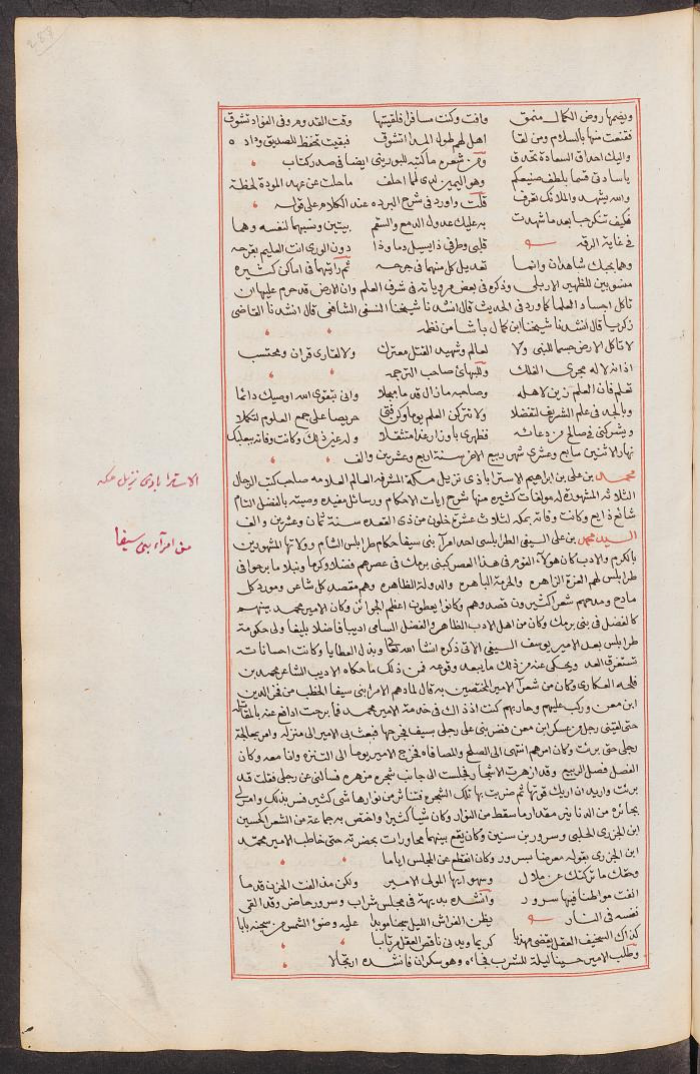 ويضمها روض الكمال منمق وافت وكنت مسافرا فلقيتها وقت القدوم وفي الفواد تشوق
فقنعت منها بالسلام ومن لقا اهل لهم طول المدا اتشوق فبقيت تحفظ للصديق وداده
واليك احداق السعادة تحدق ومن شعره ما كتبه للبوريني ايضا في صدر كتاب
يا سادتي قسما بلطف صنيعكم وهو اليمين لدي لها احلف ما حلت عن عهد المودة لحظة
والله يشهد والملائك تعرف قلت واورد في شرح البرده عند الكلام على قوله
فكيف تنكر حبا بعد ما شهدت به عليك عدول الدمع والسقم بيتين ونسبهما لنفسه وهما
في غاية الرقه قلبي وطرفي ذا يسيل دما وذا دون الورى انت العليم بقرحه
وهما بحبك شاهدان وانما تعديل كل منهما في جرحه ثم رايتهما في اماكن كثيره
منسوبين للظهير الاربلي وذكره في بعض مروياته في شرف العلم وان الارض قد حرم عليها ان
تاكل اجساد العلما كما ورد في الحديث قال انشدنا شيخنا النسفي الشافعي قال انشدنا القاضي
زكريا قال انشدنا شيخنا ابن كمال باشا من نظمه
لا تاكل الارض جسما للنبي ولا لعالم وشهيد القتل معترك ولا لقاري قران ومحتسب
اذانه لاله مجرى الفلك وللبهائي صاحب الترجمه
تعلم فان العلم زين لاهله وصاحبه ما زال قدما مبجلا واني بتقوى الله اوصيك دائما
وبالجد في علم الشريف لتفضلا ولا تتركن العلم يوما وكن فتى حريصا على جمع العلوم لتكملا
ويشركني في صالح من دعائه فظهري باوزار غدا متثقلا وله غير ذلك وكانت وفاته ببعلبك
نهار الاثنين سابع وعشري شهر ربيع الاخر سنة اربع وعشرين والف
محمد بن علي بن ابراهيم الاسترابادي نزيل مكة المشرفه العالم العلامه صاحب كتب الرجال
الثلاثه المشهورة له مولفات كثيره منها شرح ايات الاحكام ورسائل مفيده وصيته بالفضل التام
شائع ذايع وكانت وفاته بمكه لثلاث عشرة خلون من ذي القعده سنة ثمان وعشرين والف
السيد محمد بن علي السيفي الطرابلسي احد امرآ بني سيفا حكام طرابلس الشام وولاتها المشهورين
بالكرم والادب كان هولاء القوم في هذا العصر كبني برمك في عصرهم فضلا وكرما ونبلا ما برحوا في
طرابلس لهم العزة الزاهره والحرمة الباهره والدولة الظاهره وهم مقصد كل شاعر ومورد كل
مادح ومدحهم شعرا كثيرون قصدوهم وكانوا يعطون اعظم الجوائز وكان الامير محمد بينهم
كالفضل في بني برمك وكان من اهل الادب الظاهر والفضل السامي اديبا فاضلا بليغا ولي حكومة
طرابلس بعد الامير يوسف السيفي الاتي ذكره انشا الله تعالى وبذل العطايا وكانت احساناته
تستغرق العد ويحكى عنه من ذلك ما يبعد وقوعه فمن ذلك ما حكاه الاديب الشاعر محمد بن
العكاري وكان من شعرآ الامير المختصين به قال لما دهم الامرا بني سيفا الخطب من فخر الدين
ابن معن وركب عليهم وحاربهم كنت اذ ذاك في خدمة الامير محمد فما برحت ادافع عنه بالمقاتله
حتى لقيني رجل من عسكر ابن معن فضربني على رجلي بسيف فجرحها فبعث بي الامير الى منزله وامر بمعالجة
رجلي حتى برئت وكان امرهم انتهى الى الصلح والمصافاه فخرج الامير يوما الى التنزه وانا معه وكان
الفصل فصل الربيع وقد ازهرت الاشجار فجلست الى جانب شجره مزهره فسالني عن رجلي فقلت قد
برئت واريد ان اريك قوتها ثم ضربت بها تلك الشجره فتناثر من نوارها شي كثير فسر بذلك وامر لي
بجائزه من الدنانير مقدار ما سقط من النوار وكان شيا كثيرا واختص به جماعة من الشعرا كحسين
ابن الجزري الحلبي وسرور بن سنين وكان يقع بينهما محاورات بحضرته حتى خاطب الامير محمد
ابن الجزري بقوله معرضا بسرور وكان انقطع عن المجلس اياما
وحقك ما تركتك عن ملال وسهو ايها المولى الامير ولكن مذ الفت الحزن قدما
انفت مواطنا فيها سرور وانشده بديهة في مجلس شراب وسرور حاضر وقد القى
نفسه في النار يظن الفراش الليل سجنا موبدا عليه وضوء الشمس من سجنه بابا
كذاك السخيف العقل يقضي مهذبا كريما ويدني ناقص العقل مرتابا
وطلب الامير حسينا ليلة للشرب فجاءه وهو سكران فانشده ارتجالا
الاسترابادي نزيل مكه
من امرآء بني سيفا
288